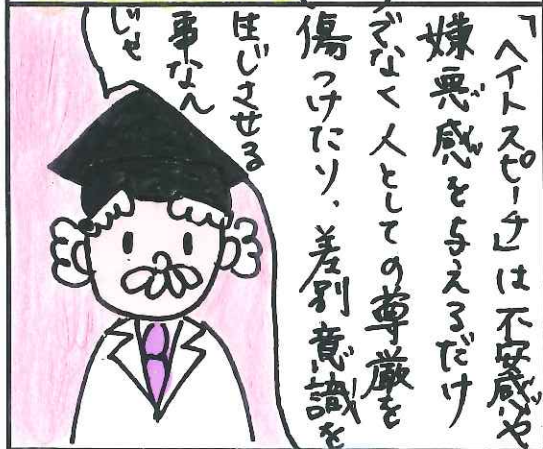 「ヘイトスピーチ」は不安感や
嫌悪感を与えるだけ
でなく人としての尊厳を
傷つけたり、差別意識を
生じさせる
事なん
じゃ